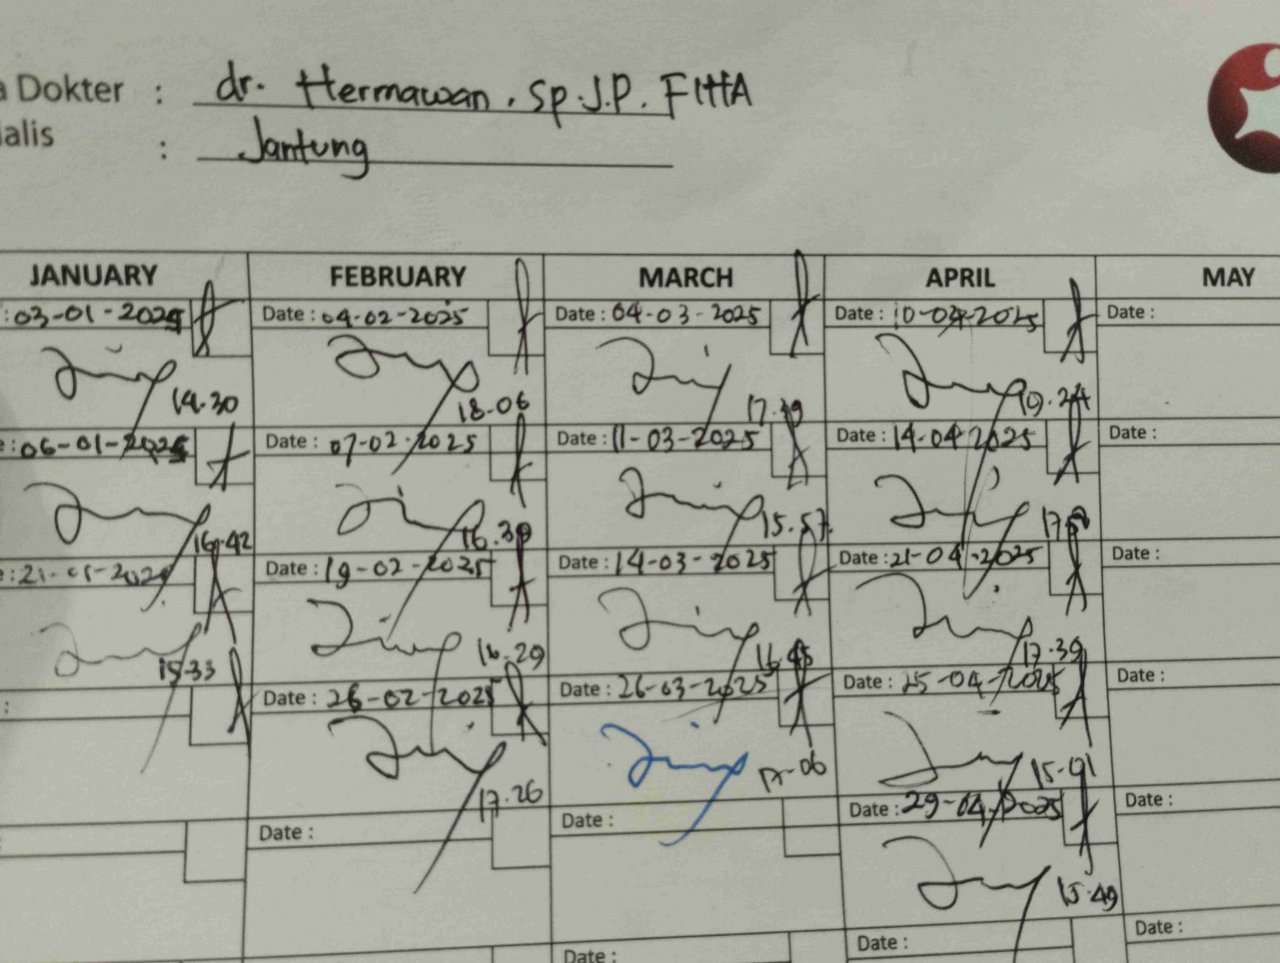 a Dokter : dr. Hermawan, Sp.J.P. FIHA
ialis : Jantung
JANUARY FEBRUARY MARCH APRIL MAY
: 03-01-2025 Date : 04-02-2025 Date : 04-03-2025 Date : 10-04-2025 Date :
14.30 18.06 17.39 19.24
e : 06-01-2025 Date : 07-02-2025 Date : 11-03-2025 Date : 14-04-2025 Date :
16.42 16.39 15.57
e : 21-01-2025 Date : 19-02-2025 Date : 14-03-2025 Date : 21-04-2025 Date :
15.33 16.29 16.45 17.39
: Date : 26-02-2025 Date : 26-03-2025 Date : 25-04-2025 Date :
17.26 17-06 15.01
Date : Date : Date : 29-04-2025 Date :
15.49
Date : Date : Date :